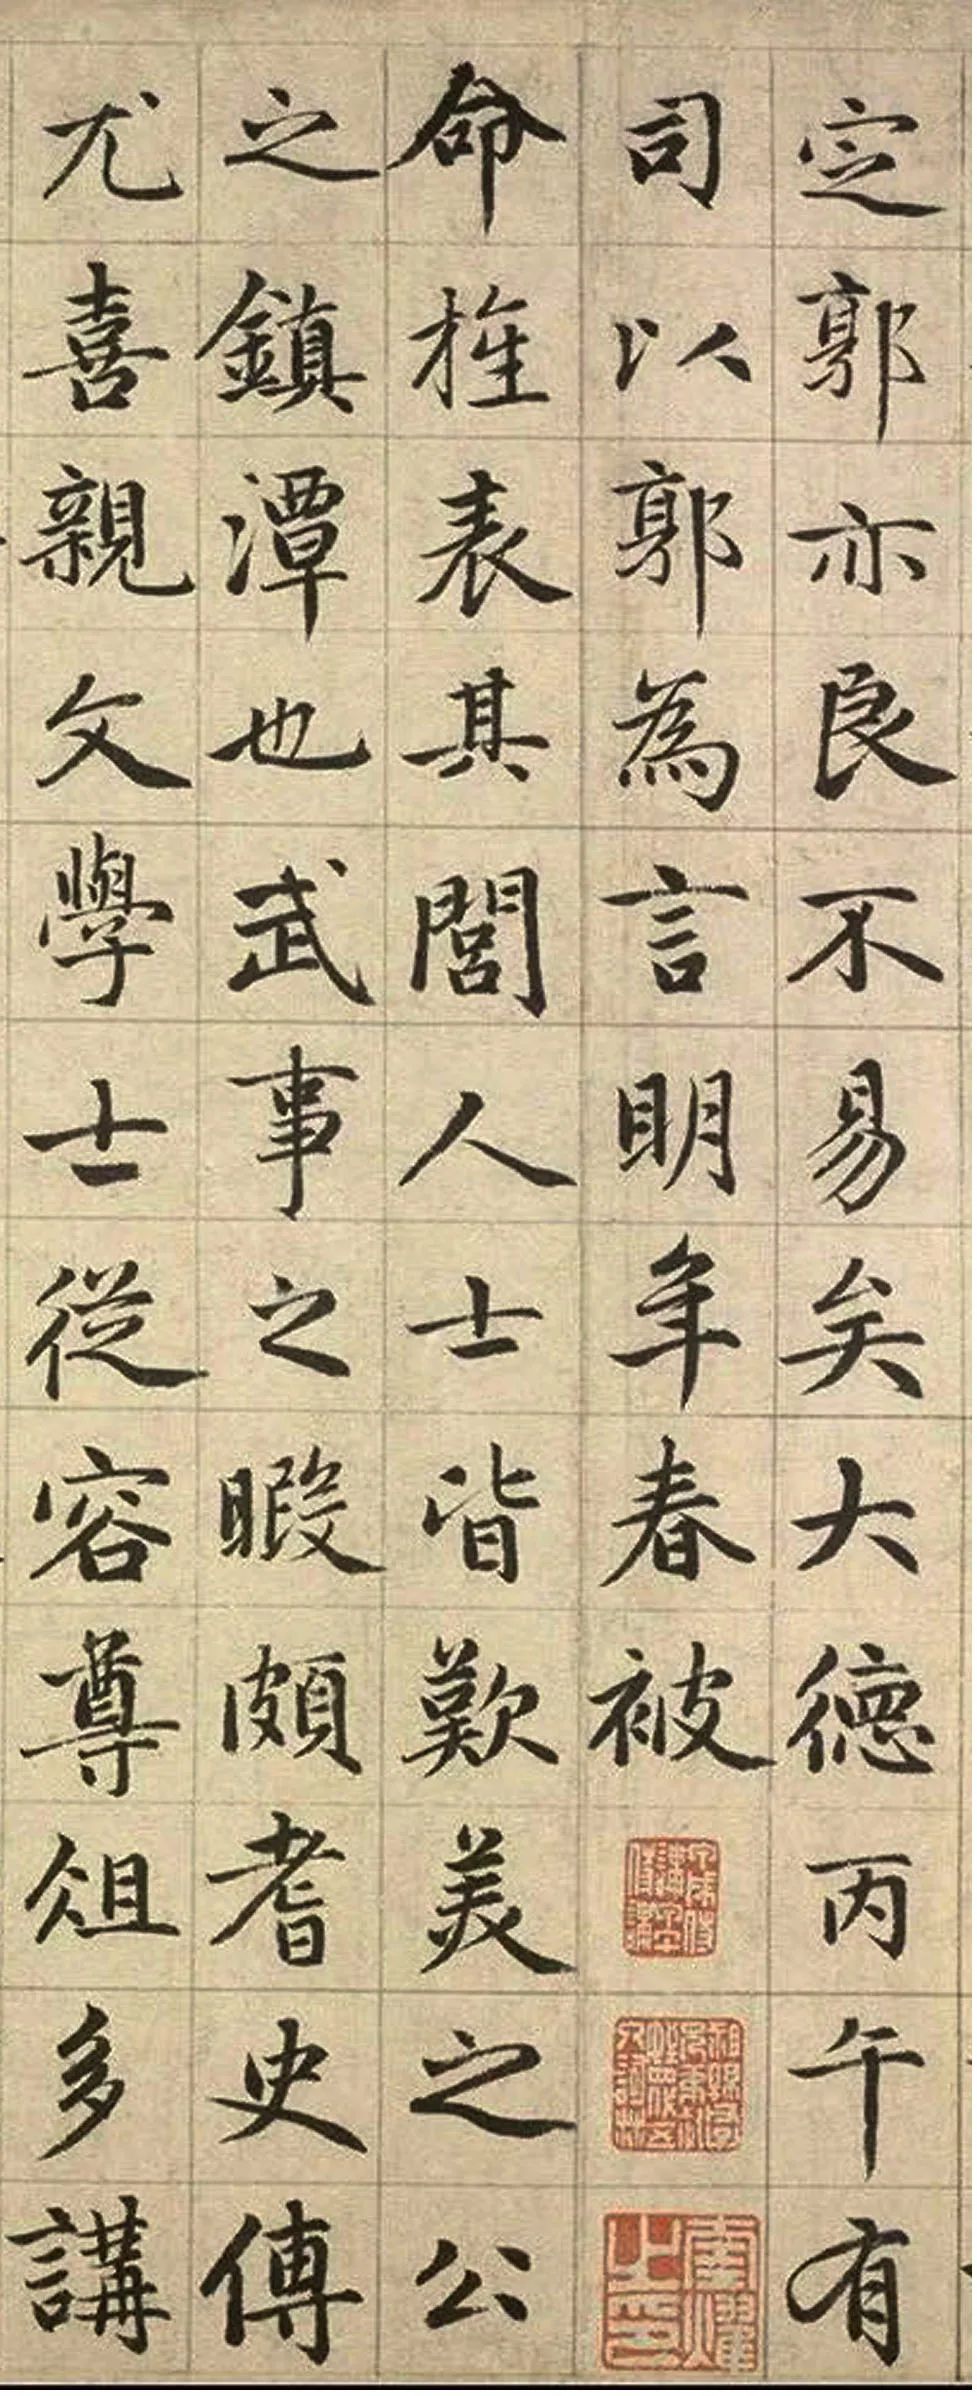 定郭亦良不易矣大德丙午有
司以郭為言明年春被
命旌表其閭人士皆歎美之公
之鎮潭也武事之暇頗耆史傳
尤喜親文學士從容尊俎多講